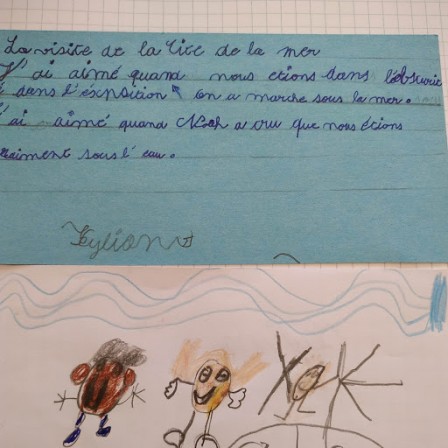 La visite de la Cité de la mer
J'ai aimé quand nous étions dans l'obscurité
dans l'éxpsition on a marché sous la mer.
J'ai aimé quand Noah a cru que nous étions
vraiment sous l'eau.
Kylian